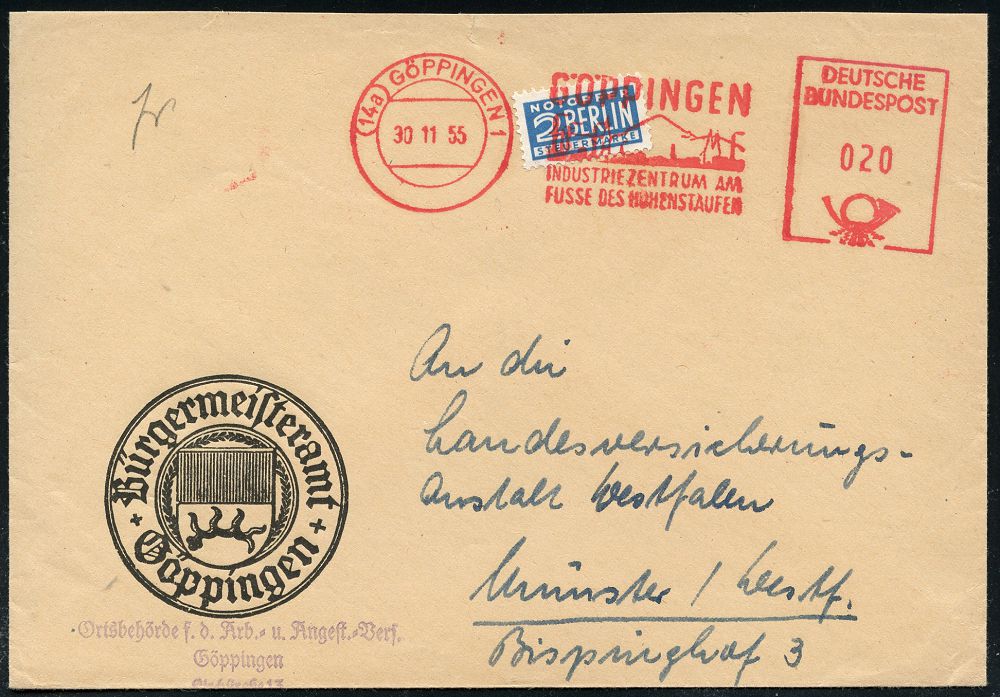 (14a) GÖPPINGEN 1
30 11 55
NOTOPFER
2 BERLIN
STEUERMARKE
GÖPPINGEN
INDUSTRIEZENTRUM AM
FUSSE DES HOHENSTAUFEN
DEUTSCHE
BUNDESPOST
020
An die
Landesversicherungs-
Anstalt Westfalen
Münster / Westf.
Bispinghof 3
Bürgermeisteramt
Göppingen
Ortsbehörde f. d. Arb.- u. Angest.-Vers.
Göppingen